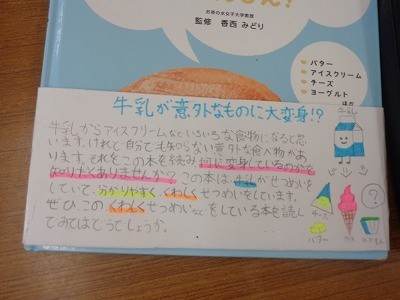 へんしん!
お茶の水女子大学教授
監修 香西みどり
・バター
・アイスクリーム
・チーズ
・ヨーグルト
ほか
牛乳が意外なものに大変身!?
牛乳からアイスクリームなどいろいろな食物になると思
います。けれど自分でも知らない意外な食べ物があ
ります。それをこの本を読み何に変身しているのかを
知りたくありませんか?この本は、牛乳がせつめいを
していて、分かりやすく、くわしくせつめいをしています。
ぜひこのくわしくせつめいなどをしている本を読し
てみてはどうでしょうか。
牛乳
チーズ
アイス
バター
?